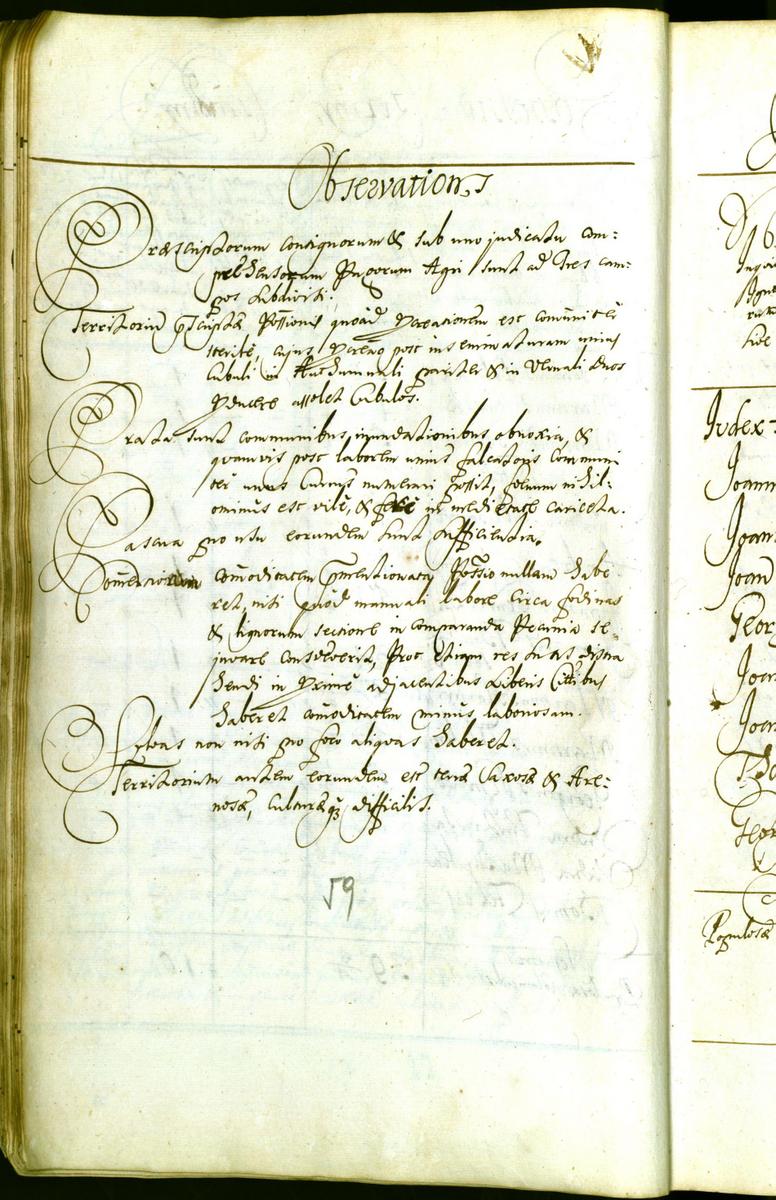 Observationes
Præscriptorum Consignorum & sub uno judicatu com=
prehensorum Pagorum Agri sunt ad tres cam=
pos subdivisi.
Territorium Possionis quoad est communiter
sterile, cujus post inseminaturam unius
Cubuli in Authumnali pariter & in Vernali duos
assolet Cubulos.
Prata sunt communibus inundationibus obnoxia, &
quamvis post laborem unius falcatoris communi
ter unus Currus numerari possit, foenum nihil-
ominus est vile, & fere in medietate cariceta.
Pascua pro usu eorundem sunt sufficientia.
Comerciorum comoditatem Possio nullam habe
ret, nisi quod manuali labore circa fodinas
& lignorum sectione in comparanda Pecunia se
juvare consveverit, Proc etiam res suas distra
hendi in adjacentibus Liberis Cittbus
haberet comoditatem minus laboriosam.
Sylvas non nisi pro foco aliquas haberet.
Territorium autem eorundem est terræ Saxosæ & Are=
nosæ, culturæq difficilis.
59
Index
Joann
Joan
Joan
Geor
Joa
Joa
Geor
Populosæ